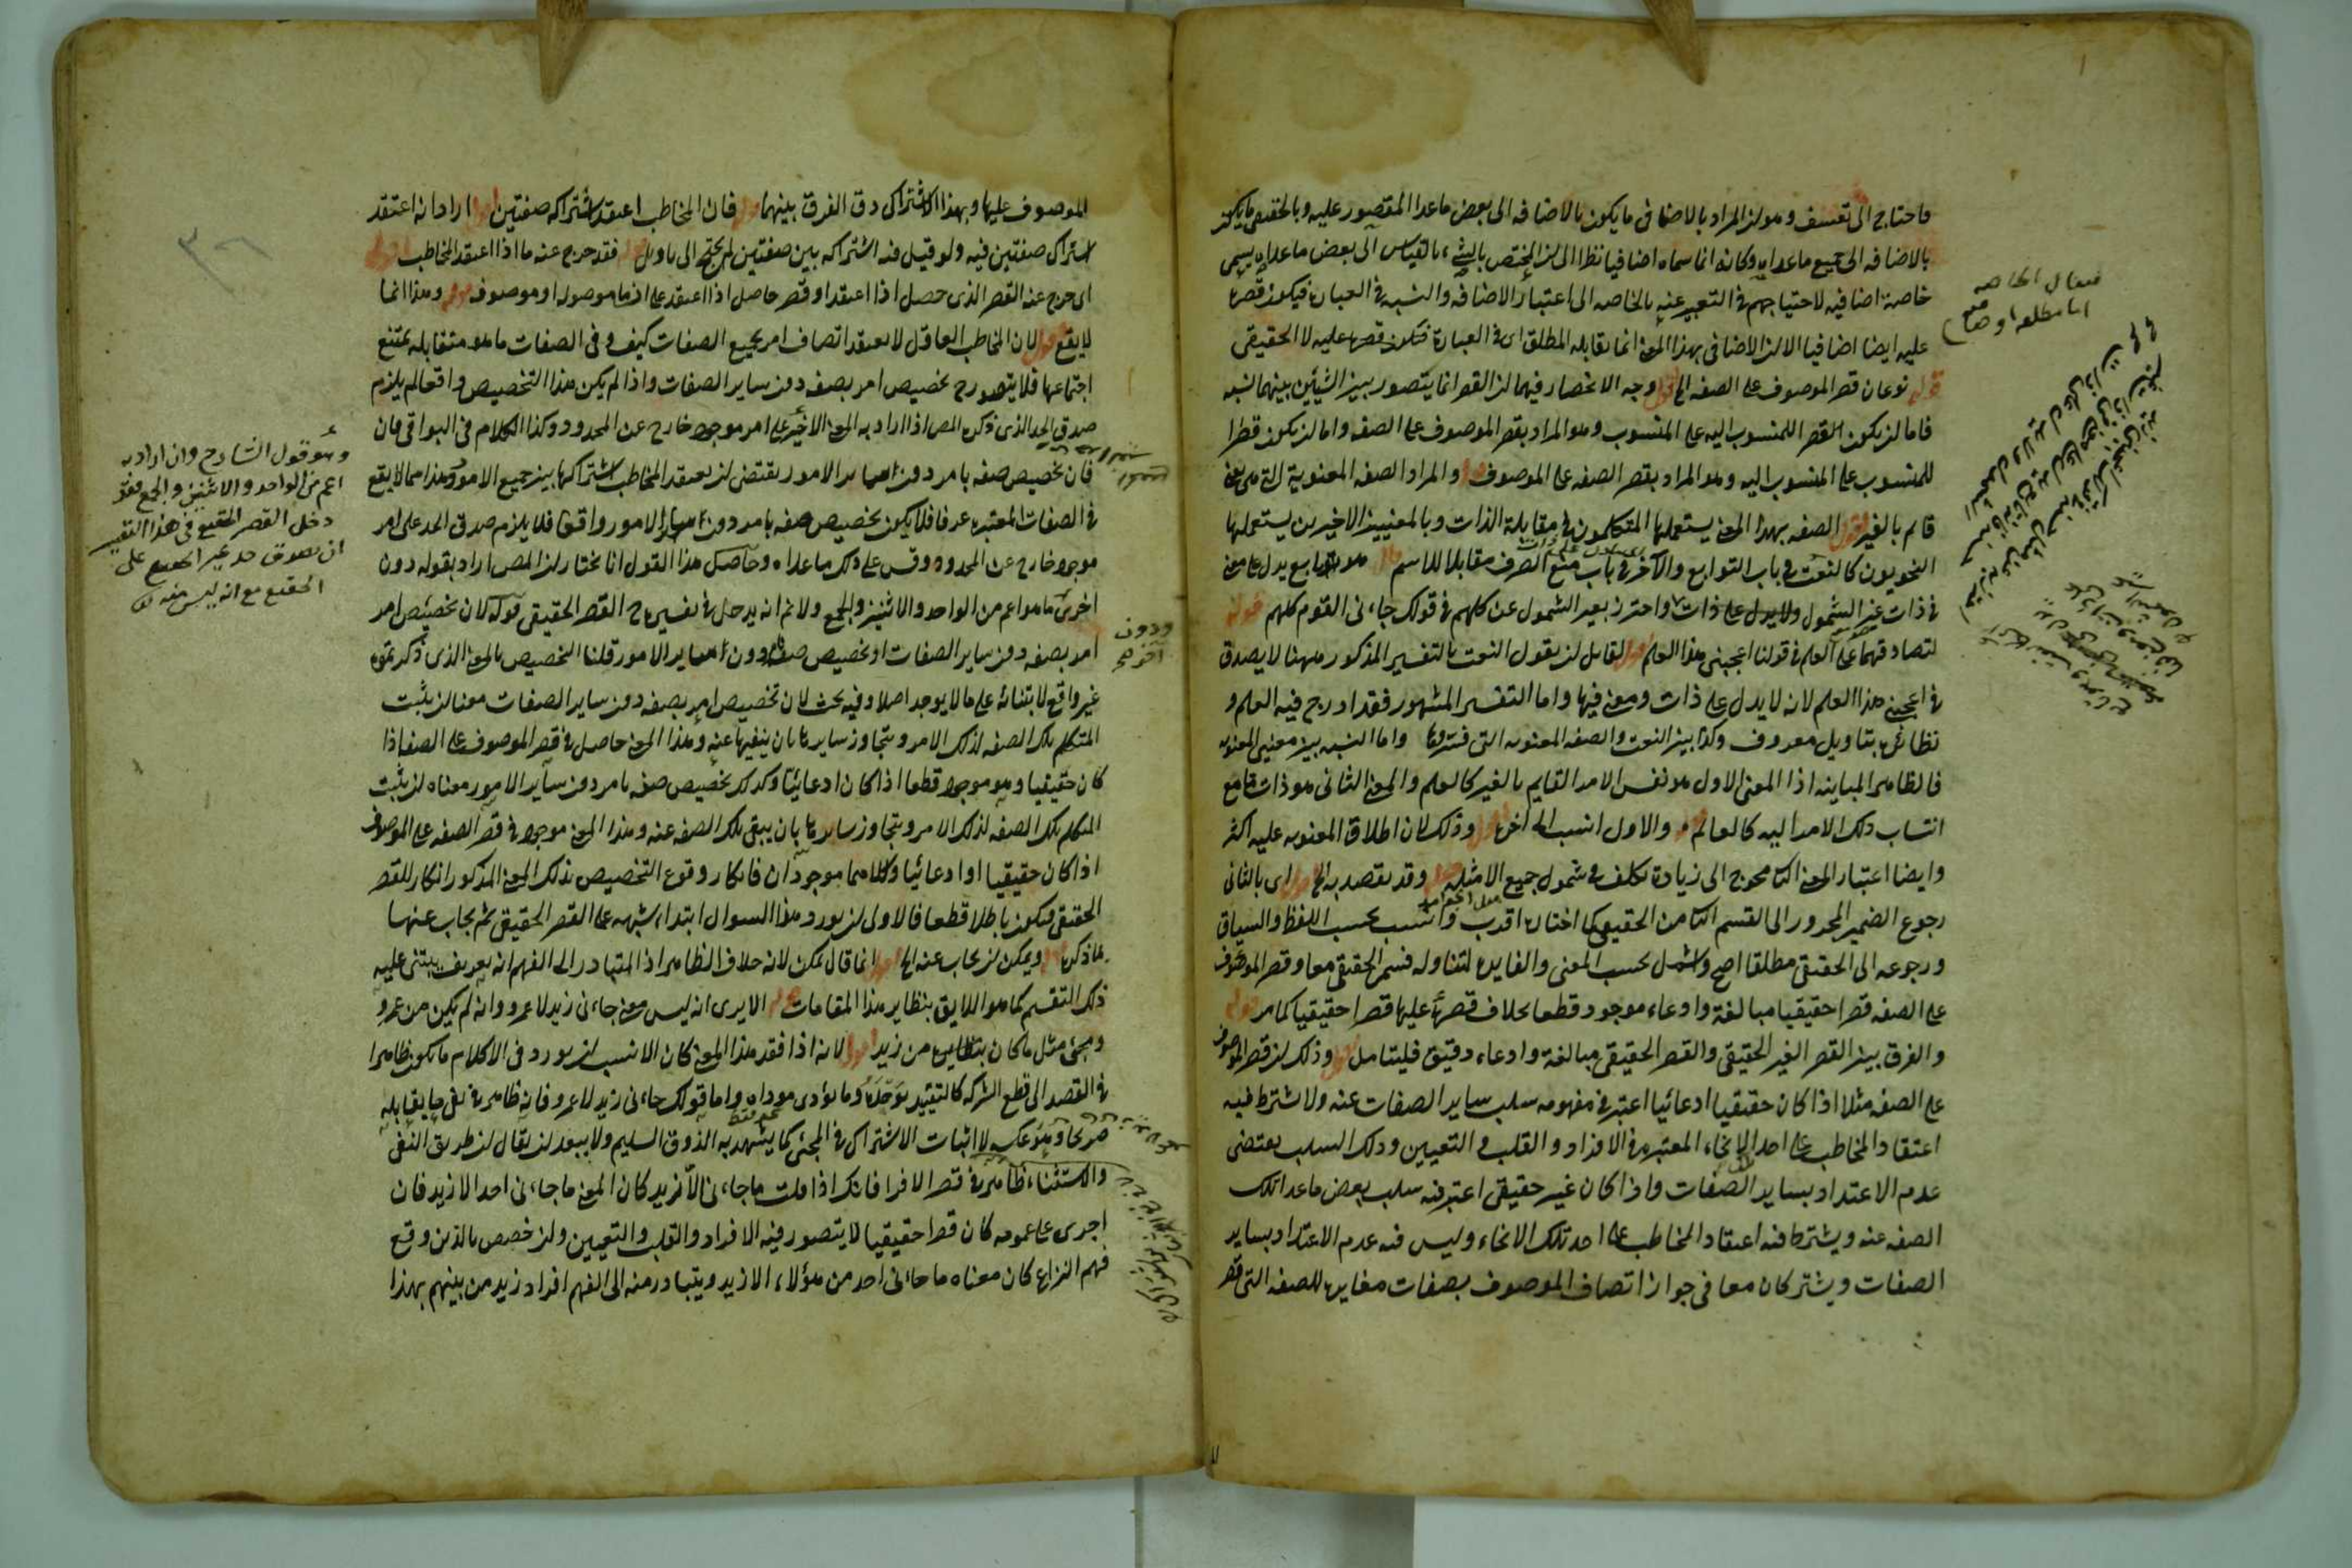 فاحتاج الى تعسف وهو ان المراد بالاضافى ما يكون بالاضافه الى بعض ماعدا المقصور عليه وبالحقيقى ما يكون
بالاضافه الى جميع ماعداه وكانه انما سماه اضافيا نظرا الى ان المختص بالشئ بالقياس الى بعض ماعداه يسمى
خاصة اضافيه لاحتياجهم فى التعبير عنه بالخاصه الى اعتبار الاضافه والنسبه فى العبارة فيكون قصره
عليه ايضا اضافيا الا ان الاضافى بهذا المعنى انما يقابله المطلق اى فى العبارة فيكون قصره عليه لا الحقيقى
قوله نوعان قصر الموصوف على الصفه الخ اقول وجه الانحصار فيهما ان القصر انما يتصور بين الشيئين بينهما نسبه
فاما ان يكون القصر للمنسوب اليه على المنسوب وهو المراد بقصر الموصوف على الصفه واما ان يكون قصرا
للمنسوب على المنسوب اليه وهو المراد بقصر الصفه على الموصوف قوله والمراد الصفه المعنوية التى هى معنى
قائم بالغير اقول الصفه بهذا المعنى يستعملها المتكلمون فى مقابلة الذات وبالمعنيين الاخيرين يستعملها
النحويون كالنعت فى باب التوابع والآخر فى باب منع الصرف مقابلا للاسم قوله هو تابع يدل على معنى
فى ذات غير الشمول ولا يدل على ذات واحترز بغير الشمول عن كلهم فى قولك جاءنى القوم كلهم قوله
لتصادقهما على العلم فى قولنا اعجبنى هذا العلم اقول لقائل ان يقول النعت بالتفسير المذكور ههنا لا يصدق
فى اعجبنى هذا العلم لانه لا يدل على ذات ومعنى فيها واما التفسير المشهور فقد ادرج فيه العلم و
نظائره بتاويل معروف وكذا بين النعت والصفه المعنويه التى فسرها واما النسبه بين معنيى المعنويه
فالظاهر المباينه اذ المعنى الاول هو نفس الامر القايم بالغير كالعلم والمعنى الثانى هو ذات ما مع
انتساب ذلك الامر اليه كالعالم قوله والاول انسب الى آخره اقول وذلك لان اطلاق المعنويه عليه اكثر
وايضا اعتبار المعنى الثا محوج الى زيادة تكلف فى شمول جميع الامثله قوله وقد يقصد به الخ اقول اى بالثانى
رجوع الضمير المجرور الى القسم الثا من الحقيقى كما اختاره اقرب وانسب بحسب اللفظ والسياق
ورجوعه الى الحقيقى مطلقا اصح واشمل بحسب المعنى والفايده لتناوله قسمى الحقيقى معا وقصر الموصوف
على الصفه قصرا حقيقيا مبالغة وادعاء موجود قطعا بخلاف قصره عليها قصرا حقيقيا كما مر قوله
والفرق بين القصر الغير الحقيقى والقصر الحقيقى مبالغة وادعاء دقيق فليتامل اقول وذلك ان قصر الموصوف
على الصفه مثلا اذا كان حقيقيا ادعائيا اعتبر فى مفهومه سلب ساير الصفات عنه ولا شترط فيه
اعتقاد المخاطب على احد الانحاء المعتبره فى الافراد والقلب والتعيين وذلك السلب يقتضى
عدم الاعتداد بساير الصفات واذا كان غير حقيقى اعتبر فيه سلب بعض ماعدا تلك
الصفه عنه ويشترط فيه اعتقاد المخاطب على احد تلك الانحاء وليس فيه عدم الاعتداد بساير
الصفات ويشتركان معا فى جواز اتصاف الموصوف بصفات مغايره للصفه التى قصر
فيقال الخاصه
اما مطلقه او اضافيه
الموصوف عليها وبهذا الاشتراك دق الفرق بينهما قوله فان المخاطب اعتقد اشتراكه صفتين اقول اراد انه اعتقد
اشتراك صفتين فيه ولو قيل فيه اشتراكه بين صفتين لم يحتج الى تاويل قوله فقد خرج عنه ما اذا اعتقد المخاطب اقول
اى خرج عنه القصر الذى حصل اذا اعتقد او قصر حاصل اذا اعتقد على ان ما موصوله او موصوفه قوله وهذا انما
لا يقع اقول لان المخاطب العاقل لا يعتقد اتصاف امر بجميع الصفات كيف وفى الصفات ما هو متقابله يمتنع
اجتماعها فلا يتصور ح تخصيص امر بصفه دون ساير الصفات واذا لم يكن هذا التخصيص واقعا لم يلزم
صدق الحد الذى ذكره المص اذا اراد به المعنى الاخير على امر موجود خارج عن المحدود وكذا الكلام فى البواقى فان
فان تخصيص صفه بامر دون ساير الامور يقتضى ان يعتقد المخاطب اشتراكها بين جميع الامور وهذا مما لا يقع
فى الصفات المعتبره عرفا فلا يكون تخصيص صفه بامر دون ساير الامور واقعا فلا يلزم صدق الحد على امر
موجود خارج عن المحدود وقس على ذلك ماعداه وحاصل هذا القول انا نختار ان المص اراد بقوله دون
اخرى ما هو اعم من الواحد والاثنين والجمع ولا نم انه يدخل فى تفسيره ح القصر الحقيقى قوله لان تخصيص امر
امر بصفه دون ساير الصفات او تخصيص صفه دون ساير الامور قلنا التخصيص بالمعنى الذى ذكرتموه
غير واقع لابتنائه على ما لا يوجد اصلا وفيه بحث لان تخصيص امر بصفه دون ساير الصفات معناه ان يثبت
المتكلم تلك الصفه لذلك الامر ويتجاوز سايرها بان ينفيها عنه وهذا المعنى حاصل فى قصر الموصوف على الصفه اذا
كان حقيقيا وهو موجود قطعا اذا كان ادعائيا وكذلك تخصيص صفه بامر دون ساير الامور معناه ان يثبت
المتكلم تلك الصفه لذلك الامر ويتجاوز سايرها بان ينفى تلك الصفه عنه وهذا المعنى موجود فى قصر الصفه على الموصوف
اذا كان حقيقيا او ادعائيا وكلاهما موجودان فانكار وقوع التخصيص بذلك المعنى المذكور انكار للقصر
الحقيقى فيكون باطلا قطعا فالاولى ان يورد هذا السوال ابتداء شبهه على القصر الحقيقى ثم يجاب عنها
بما ذكره قوله ويمكن ان يجاب عنه الخ اقول انما قال يمكن لانه خلاف الظاهر اذ المتبادر الى الفهم انه تعريف يبتنى عليه
ذلك التقسيم كما هو اللايق بنظاير هذا المقامات قوله الا يرى انه ليس معنى جاءنى زيد لا عمرو وانه لم يكن من عمرو
ومجئ مثل ما كان من زيد اقول لانه اذا فقد هذا المعنى كان الانسب ان يورد فى الكلام ما يكون ظاهرا
فى القصد الى قطع الشركه كالتقييد بوحده وما يؤدى موداه واما قولك جاءنى زيد لا عمرو فانه ظاهر فى نفى ما يقابله
صريحا وهو عكسه لا اثبات الاشتراك فى المجئ كما يشهد به الذوق السليم ولا يبعد ان يقال ان طريق النفى
والاستثناء ظاهره فى قصر الافراد فانك اذا قلت ما جاءنى الا زيد كان المعنى ما جاءنى احد الا زيد فان
اجرى على عمومه كان قصرا حقيقيا لا يتصور فيه الافراد والقلب والتعيين وان خصص بالذين وقع
فهم النزاع كان معناه ما جاءنى احد من هؤلاء الا زيد ويتبادر منه الى الفهم افراد زيد من بينهم بهذا
وهو قول الشارح وان اراد به
اعم من الواحد والاثنين والجمع فقد
دخل القصر الحقيقى فى هذا التفسير
الحقيقى مع انه ليس منه
ودون
اخرى صح
٣٦